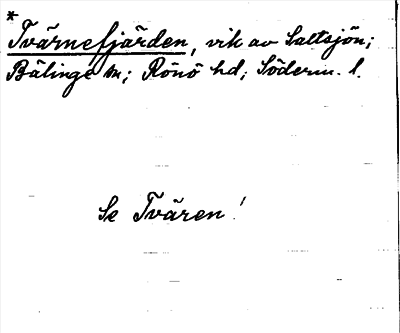 *
Tvärnefjärden, vik av Saltsjön;
Bälinge sn; Rönö hd; Söderm. l.
Se Tvären!